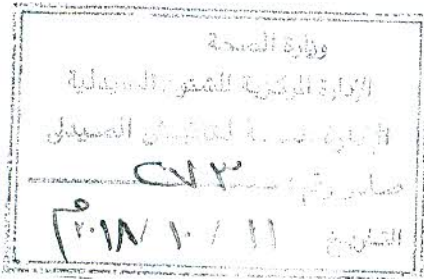 وزارة الصحة
الإدارة المركزية للشئون الصيدلية
الإدارة العامة للتفتيش الصيدلى
صادر رقم : ٢٧٣
التاريخ ١١ / ١٠ / ٢٠١٨م